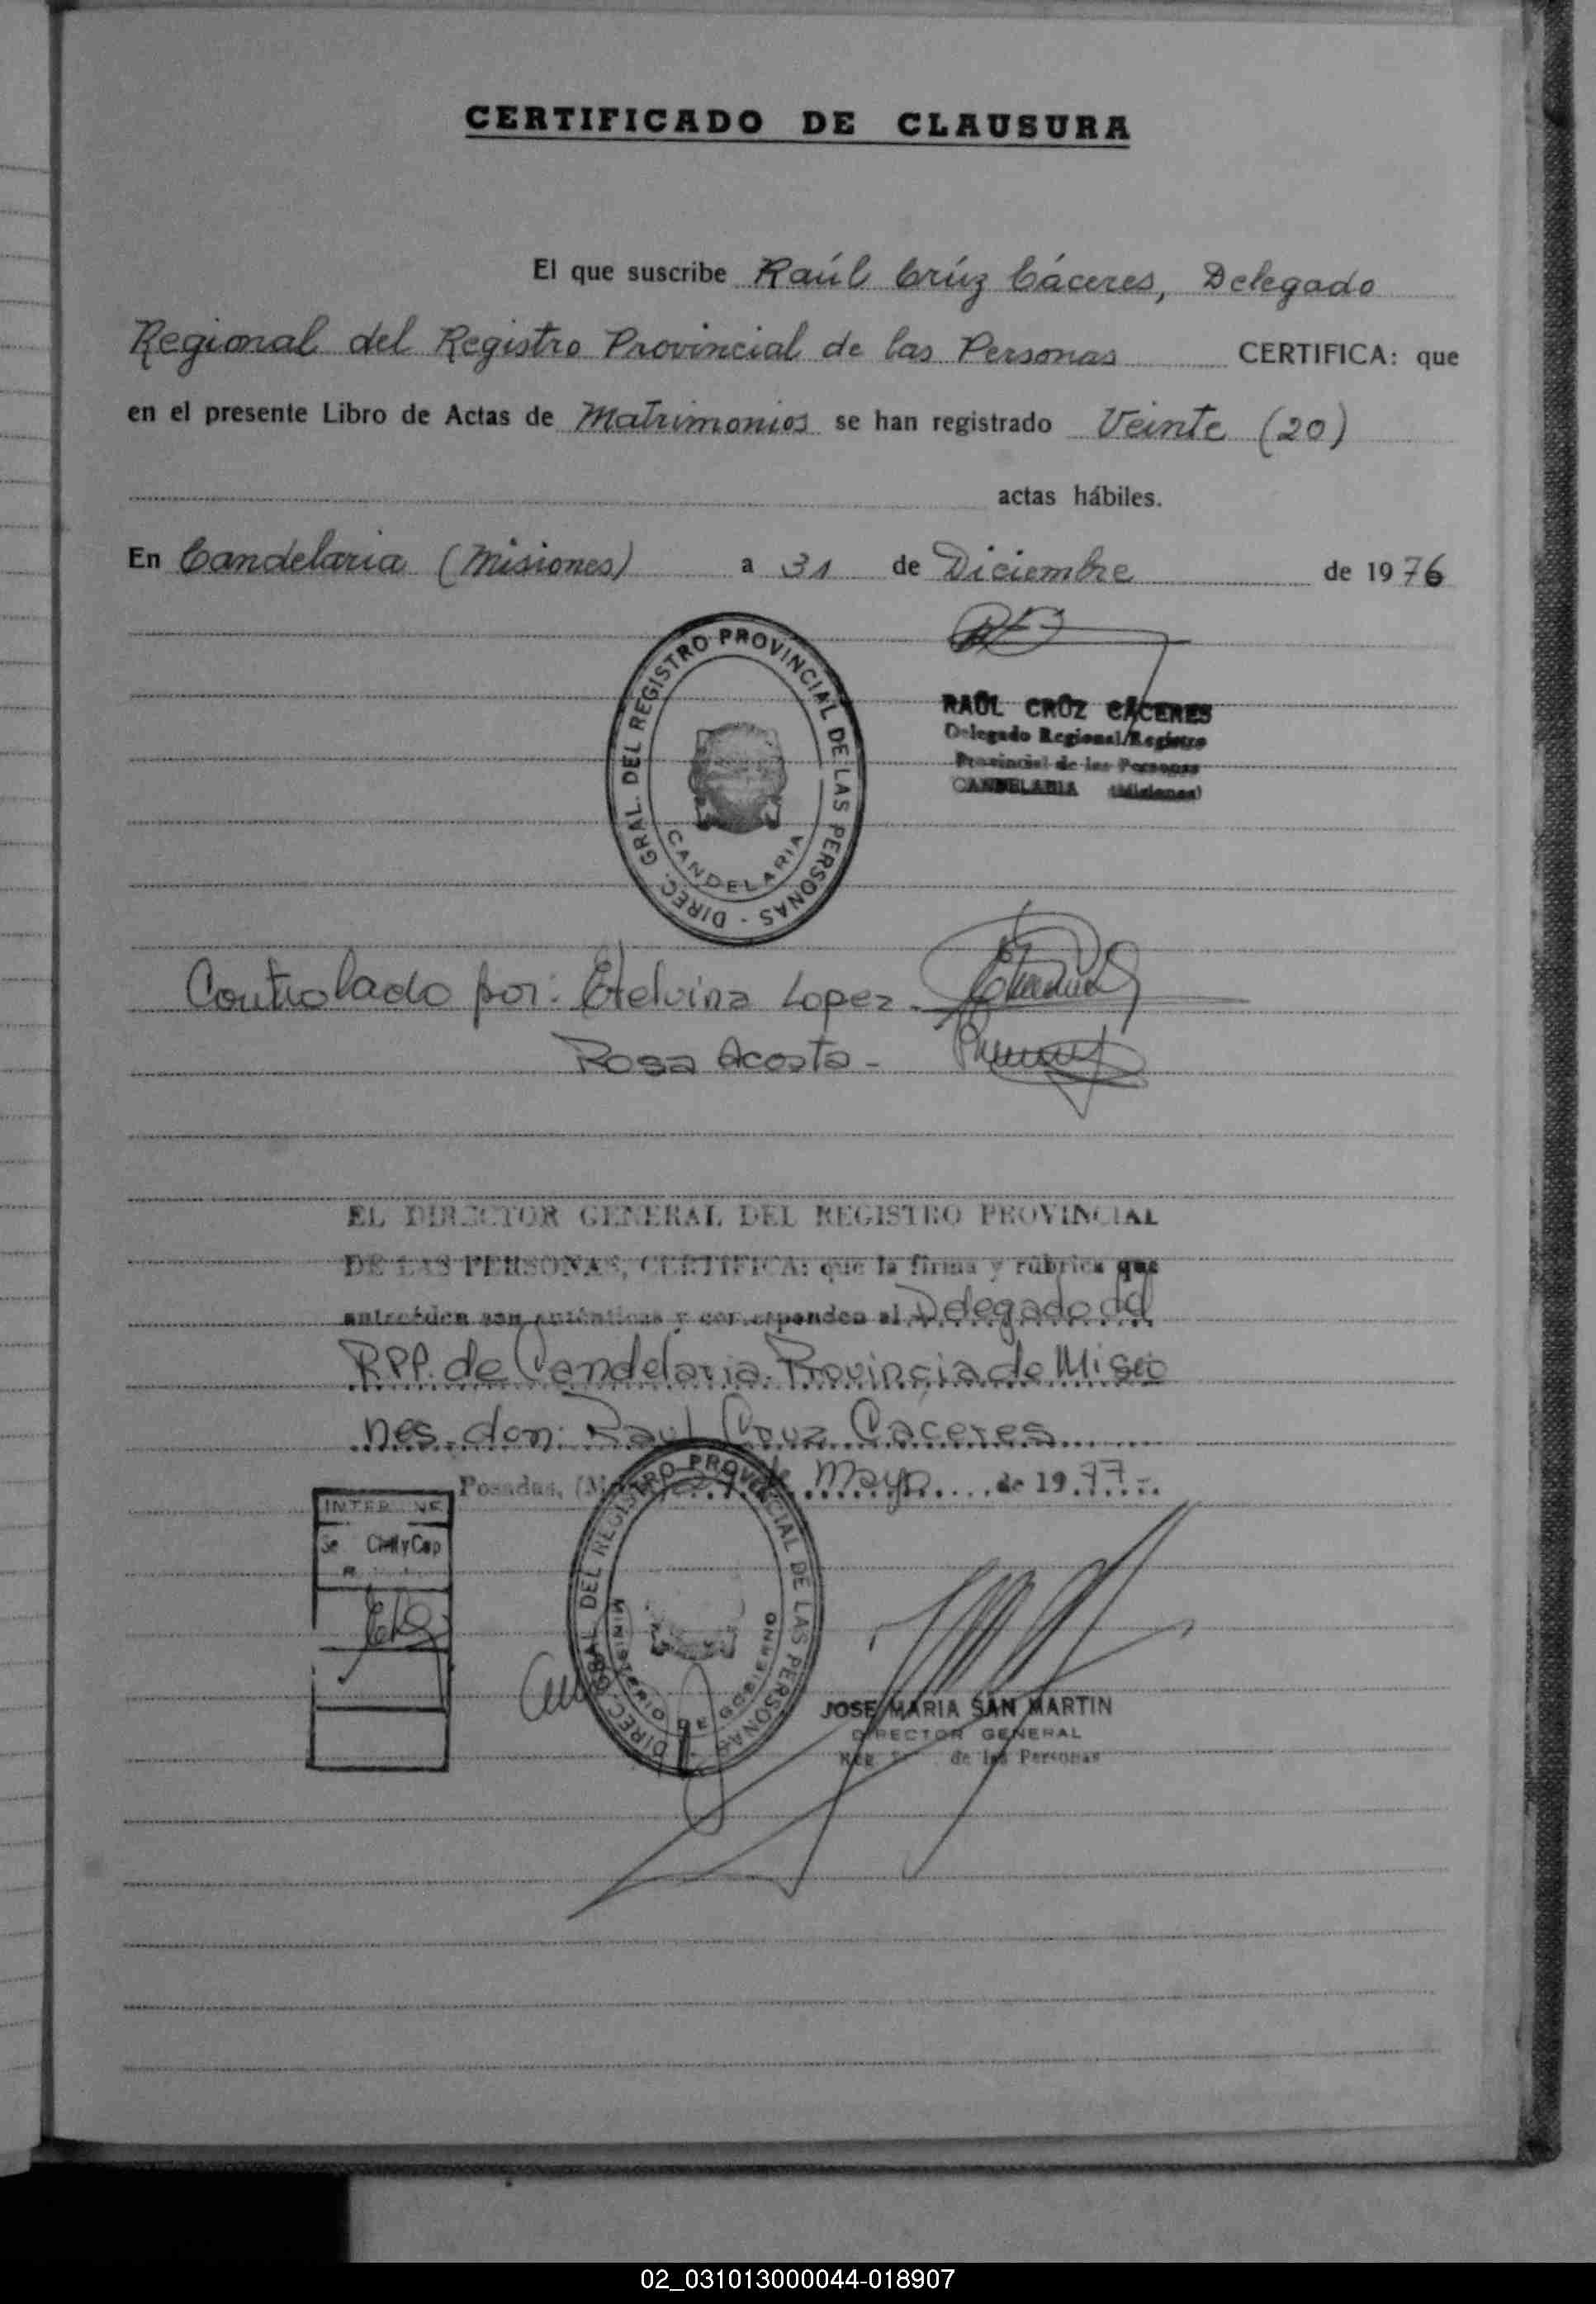 CERTIFICADO DE CLAUSURA
El que suscribe Raúl Crúz Cáceres, Delegado
Regional del Registro Provincial de las Personas CERTIFICA: que
en el presente Libro de Actas de Matrimonios se han registrado Veinte (20)
actas hábiles.
En Candelaria (Misiones) a 31 de Diciembre de 1976
DIREC. GRAL. DEL REGISTRO PROVINCIAL DE LAS PERSONAS -
CANDELARIA
RAÚL CRÚZ CÁCERES
Delegado Regional/Registro
Provincial de las Personas
CANDELARIA (Misiones)
Controlado por: Etelvina Lopez.
Rosa Acosta -
EL DIRECTOR GENERAL DEL REGISTRO PROVINCIAL
DE LAS PERSONAS, CERTIFICA: que la firma y rúbrica que
anteceden son auténticas y corresponden al Delegado del
R.P.P. de Candelaria. Provincia de Misio
nes. don: Raul Cruz Caceres
Posadas, Mayo de 1977.-
INTER NE
Se Civil y Cap
DIREC. GRAL DEL REGISTRO PROVINCIAL DE LAS PERSONAS -
MINISTERIO DE GOBIERNO
JOSE MARIA SAN MARTIN
DIRECTOR GENERAL
de las Personas
02_031013000044-018907